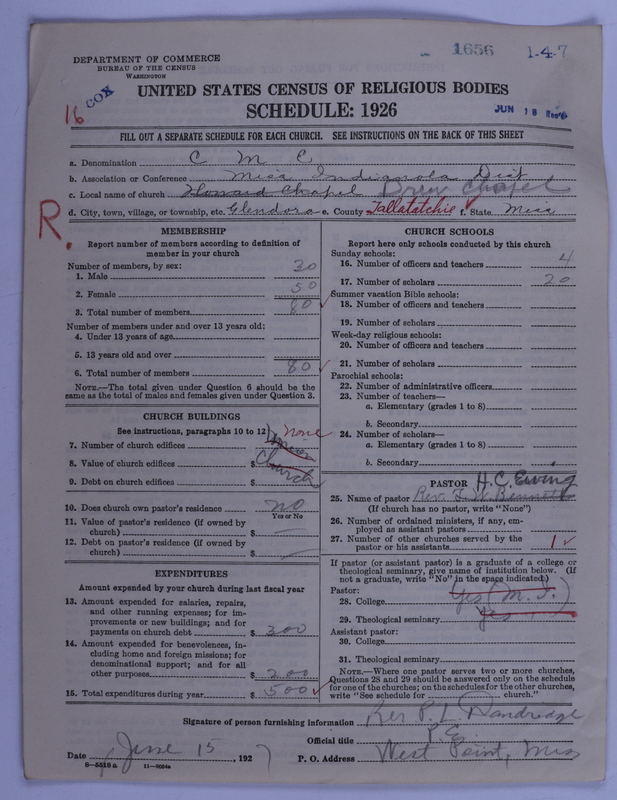 1656 1-4-7
DEPARTMENT OF COMMERCE
BUREAU OF THE CENSUS
WASHINGTON
16 COX
UNITED STATES CENSUS OF RELIGIOUS BODIES
SCHEDULE: 1926
JUN 18 Rec'd
FILL OUT A SEPARATE SCHEDULE FOR EACH CHURCH. SEE INSTRUCTIONS ON THE BACK OF THIS SHEET
a. Denomination C M E
b. Association or Conference Miss Indianola Dist
c. Local name of church Howard Chapel Drew Chapel
d. City, town, village, or township, etc. Glendora e. County Tallatatchie f. State Miss
R.
MEMBERSHIP
Report number of members according to definition of
member in your church
Number of members, by sex:
1. Male 30
2. Female 50
3. Total number of members 80
Number of members under and over 13 years old:
4. Under 13 years of age
5. 13 years old and over
6. Total number of members 80
NOTE.—The total given under Question 6 should be the
same as the total of males and females given under Question 3.
CHURCH BUILDINGS
See instructions, paragraphs 10 to 12
7. Number of church edifices none
8. Value of church edifices $ Church
9. Debt on church edifices $
10. Does church own pastor's residence no
Yes or No
11. Value of pastor's residence (if owned by
church) $
12. Debt on pastor's residence (if owned by
church) $
EXPENDITURES
Amount expended by your church during last fiscal year
13. Amount expended for salaries, repairs,
and other running expenses; for im-
provements or new buildings; and for
payments on church debt $ 300
14. Amount expended for benevolences, in-
cluding home and foreign missions; for
denominational support; and for all
other purposes $ 200
15. Total expenditures during year $ 500
CHURCH SCHOOLS
Report here only schools conducted by this church
Sunday schools:
16. Number of officers and teachers 4
17. Number of scholars 20
Summer vacation Bible schools:
18. Number of officers and teachers
19. Number of scholars
Week-day religious schools:
20. Number of officers and teachers
21. Number of scholars
Parochial schools:
22. Number of administrative officers
23. Number of teachers—
a. Elementary (grades 1 to 8)
b. Secondary
24. Number of scholars—
a. Elementary (grades 1 to 8)
b. Secondary
PASTOR H. C. Ewing
25. Name of pastor Rev. F. W. Bennett
(If church has no pastor, write "None")
26. Number of ordained ministers, if any, em-
ployed as assistant pastors
27. Number of other churches served by the
pastor or his assistants 1
If pastor (or assistant pastor) is a graduate of a college or
theological seminary, give name of institution below. (If
not a graduate, write "No" in the space indicated.)
Pastor:
28. College Yes (M. I.)
29. Theological seminary yes
Assistant pastor:
30. College
31. Theological seminary
NOTE.—Where one pastor serves two or more churches,
Questions 28 and 29 should be answered only on the schedule
for one of the churches; on the schedules for the other churches,
write "See schedule for church."
Signature of person furnishing information Rev P. L. Dandridge
Official title P. E.
Date June 15, 1927 P. O. Address West Point, Miss
8-5518a 11-9064a